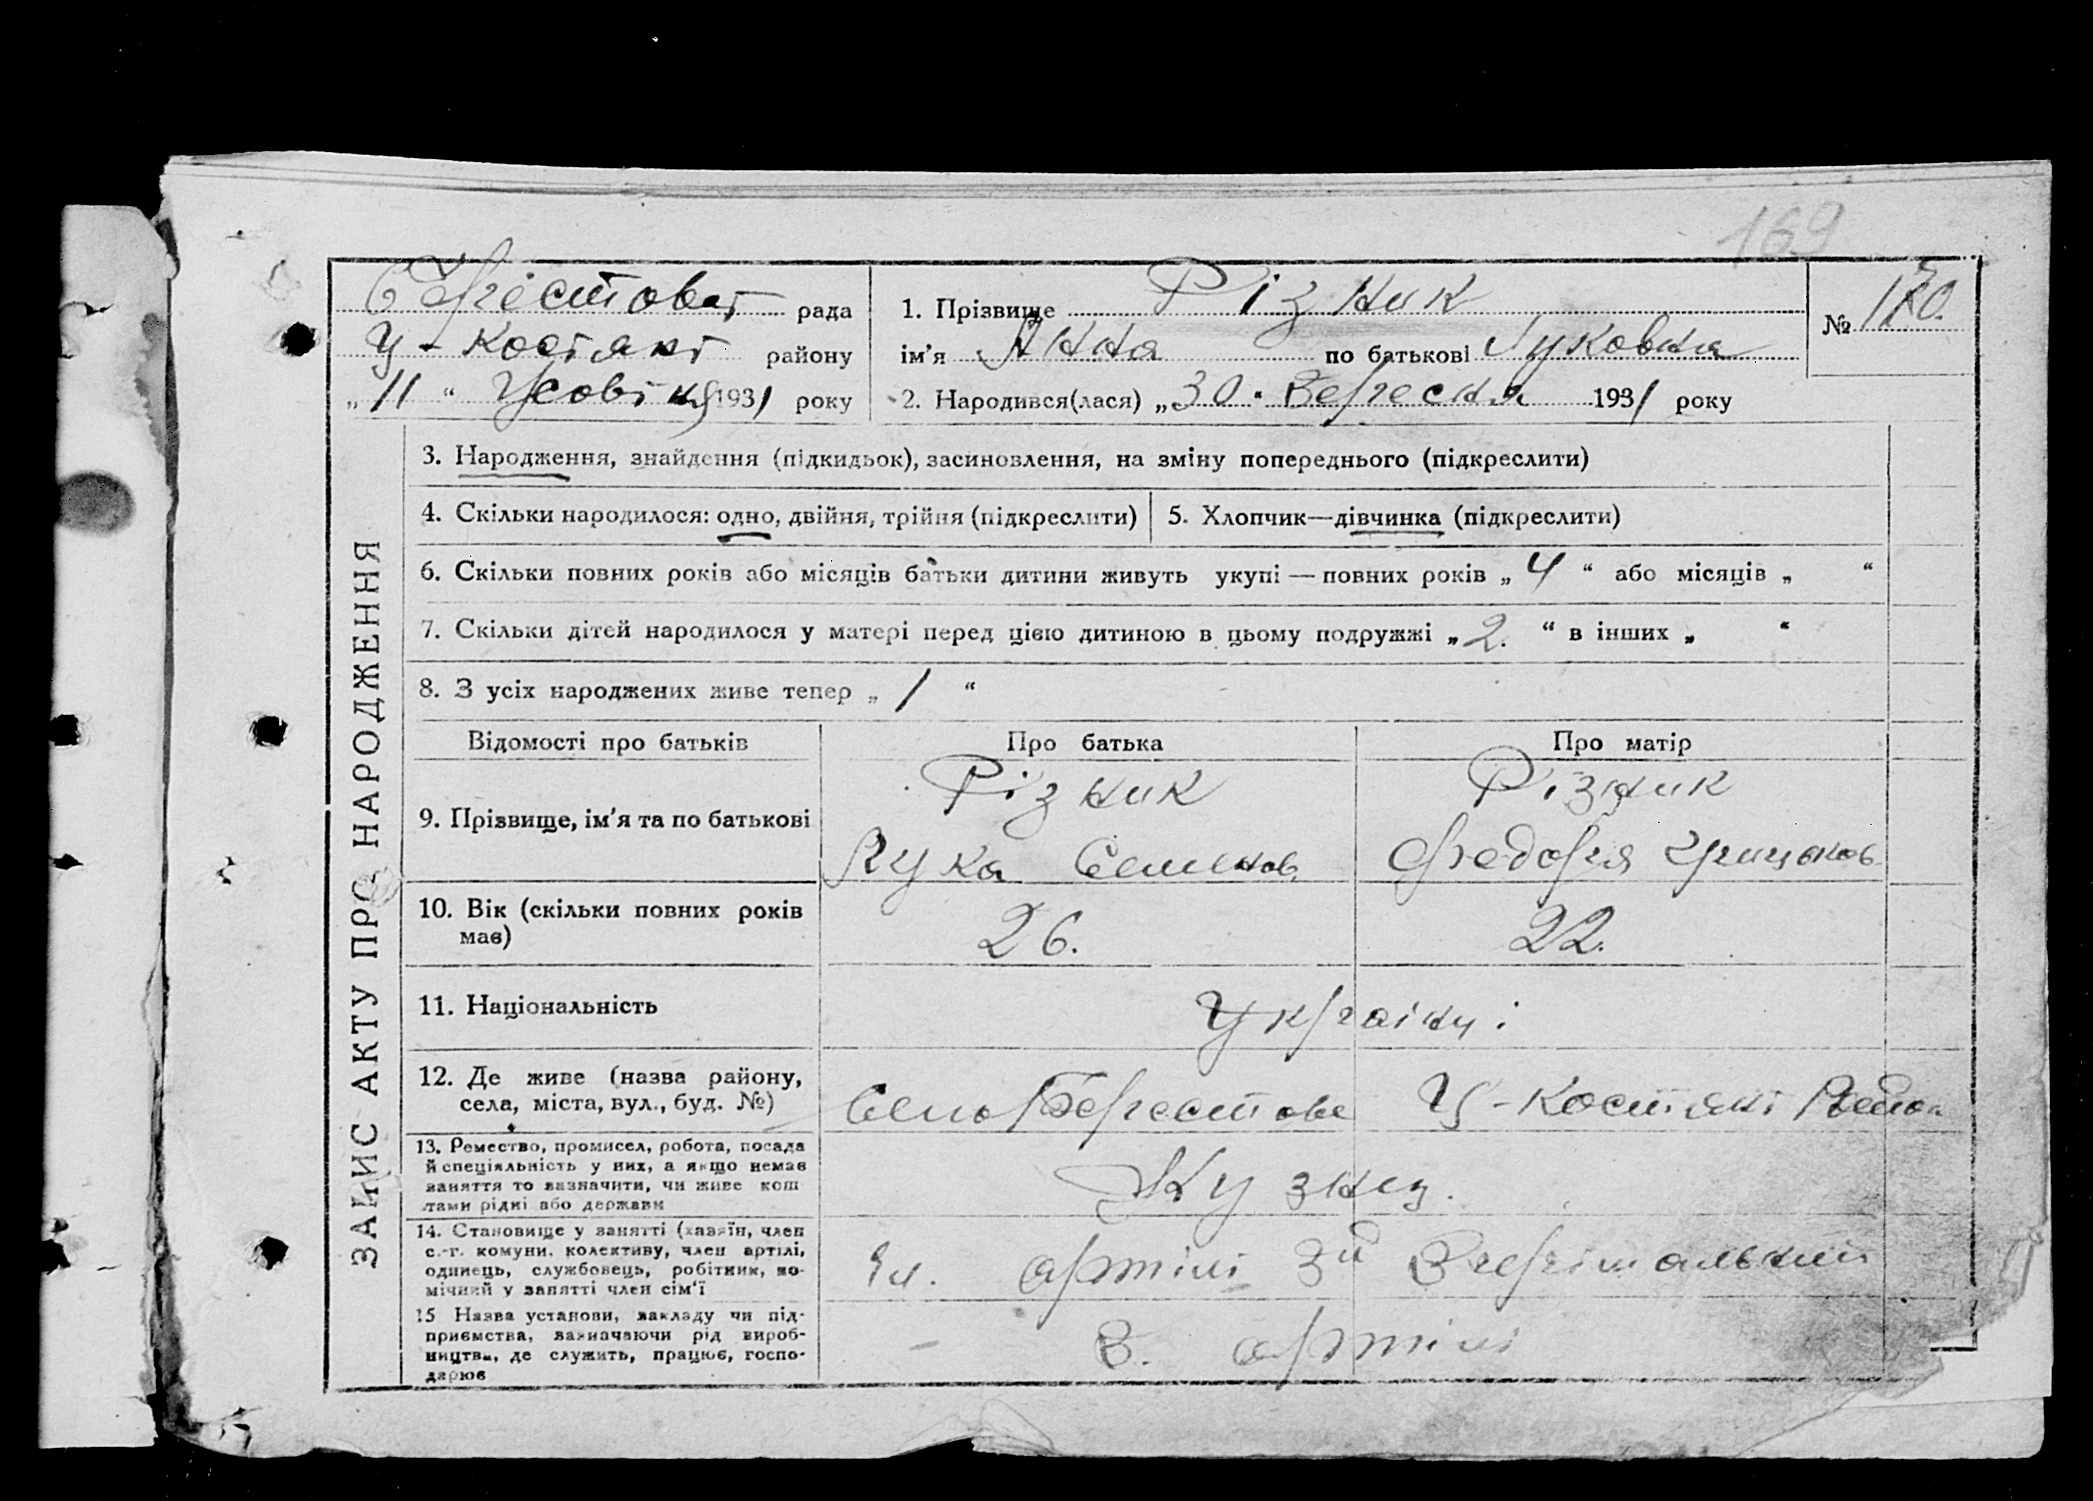 169
Берестоват рада
Ц-Костянт району
„11“ Жовтня 1931 року
1. Прізвище Різник
ім'я Анна по батькові Луковна
№ 170.
2. Народився(лася) „30“ Вересня 1931 року
ЗАПИС АКТУ ПРО НАРОДЖЕННЯ
3. Народження, знайдення (підкидьок), засиновлення, на зміну попереднього (підкреслити)
4. Скільки народилося: одно, двійня, трійня (підкреслити)
5. Хлопчик—дівчинка (підкреслити)
6. Скільки повних років або місяців батьки дитини живуть укупі — повних років „4“ або місяців „ “
7. Скільки дітей народилося у матері перед цією дитиною в цьому подружжі „2.“ в інших „ “
8. З усіх народжених живе тепер „1“
Відомості про батьків
Про батька
Про матір
9. Прізвище, ім'я та по батькові
Різник
Лука Семенов.
Різник
Федора Грицьков
10. Вік (скільки повних років
має)
26.
22.
11. Національність
Українці
12. Де живе (назва району,
села, міста, вул., буд. №)
Село Берестове Ц-Костянт Район
13. Ремество, промисел, робота, посада
й спеціяльність у них, а якщо немає
заняття то зазначити, чи живе кош
тами рідні або держави
14. Становище у занятті (хазяїн, член
с.-г. комуни, колективу, член артілі,
одинець, службовець, робітник, по-
мічний у занятті член сім'ї
Чл. артілі
15 Назва установи, закладу чи під-
приємства, зазначаючи рід вироб-
ництва, де служить, працює, госпо-
дарює
- В. артілі